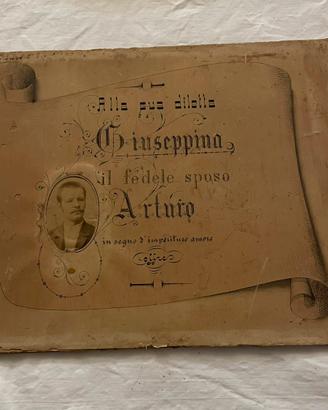 Alla sua diletta
Giuseppina
il fedele sposo
Arturo
in segno d'imperituro amore
offre